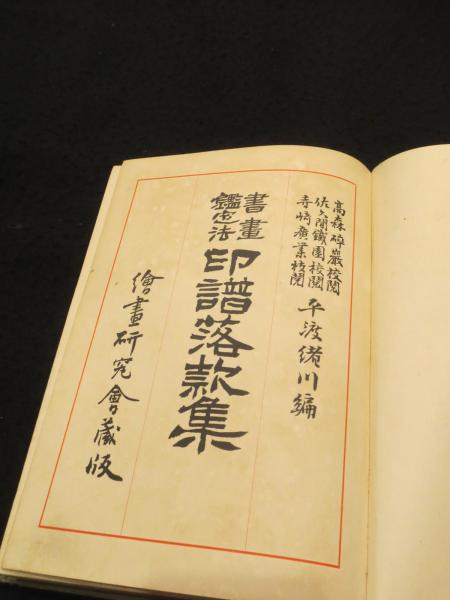 高森碎巖校閲
佐久間鐵園校閲
寺崎廣業校閲
平渡緒川編
書畫
鑑定法
印譜落款集
繪畫研究會藏版